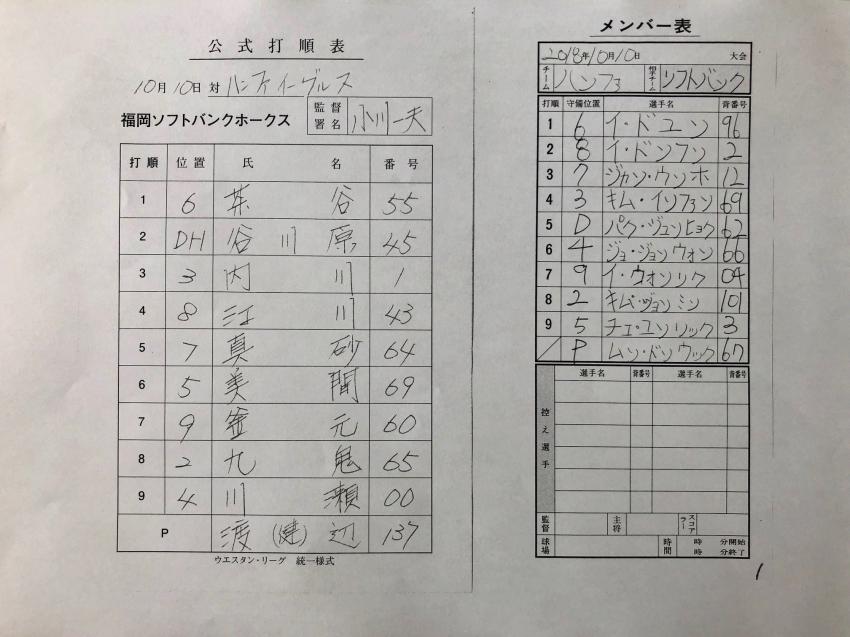 公式打順表
10月10日 対 ハンファイーグルス
福岡ソフトバンクホークス 監督署名 小川一夫
打順 位置 氏名 番号
1 6 茶谷 55
2 DH 谷川原 45
3 3 内川 1
4 8 江川 43
5 7 真砂 64
6 5 美間 69
7 9 釜元 60
8 2 九鬼 65
9 4 川瀬 00
P 渡(健)辺 137
ウエスタン・リーグ 統一様式
メンバー表
2018年10月10日 大会
チーム ハンファ 相手チーム ソフトバンク
打順 守備位置 選手名 背番号
1 6 イ・ドユン 96
2 8 イ・ドンフン 2
3 7 ジャン・ウンホ 12
4 3 キム・インファン 69
5 D パク・ジュンヒョク 62
6 4 ジョ・ジョンウォン 66
7 9 イ・ウォンソク 04
8 2 キム・ジョンミン 101
9 5 チェ・ユンソック 3
P ムン・ドンウック 67
控え選手 選手名 背番号 選手名 背番号
監督 主将 スコアラー
球場 時間 時 分開始
時 分終了
1